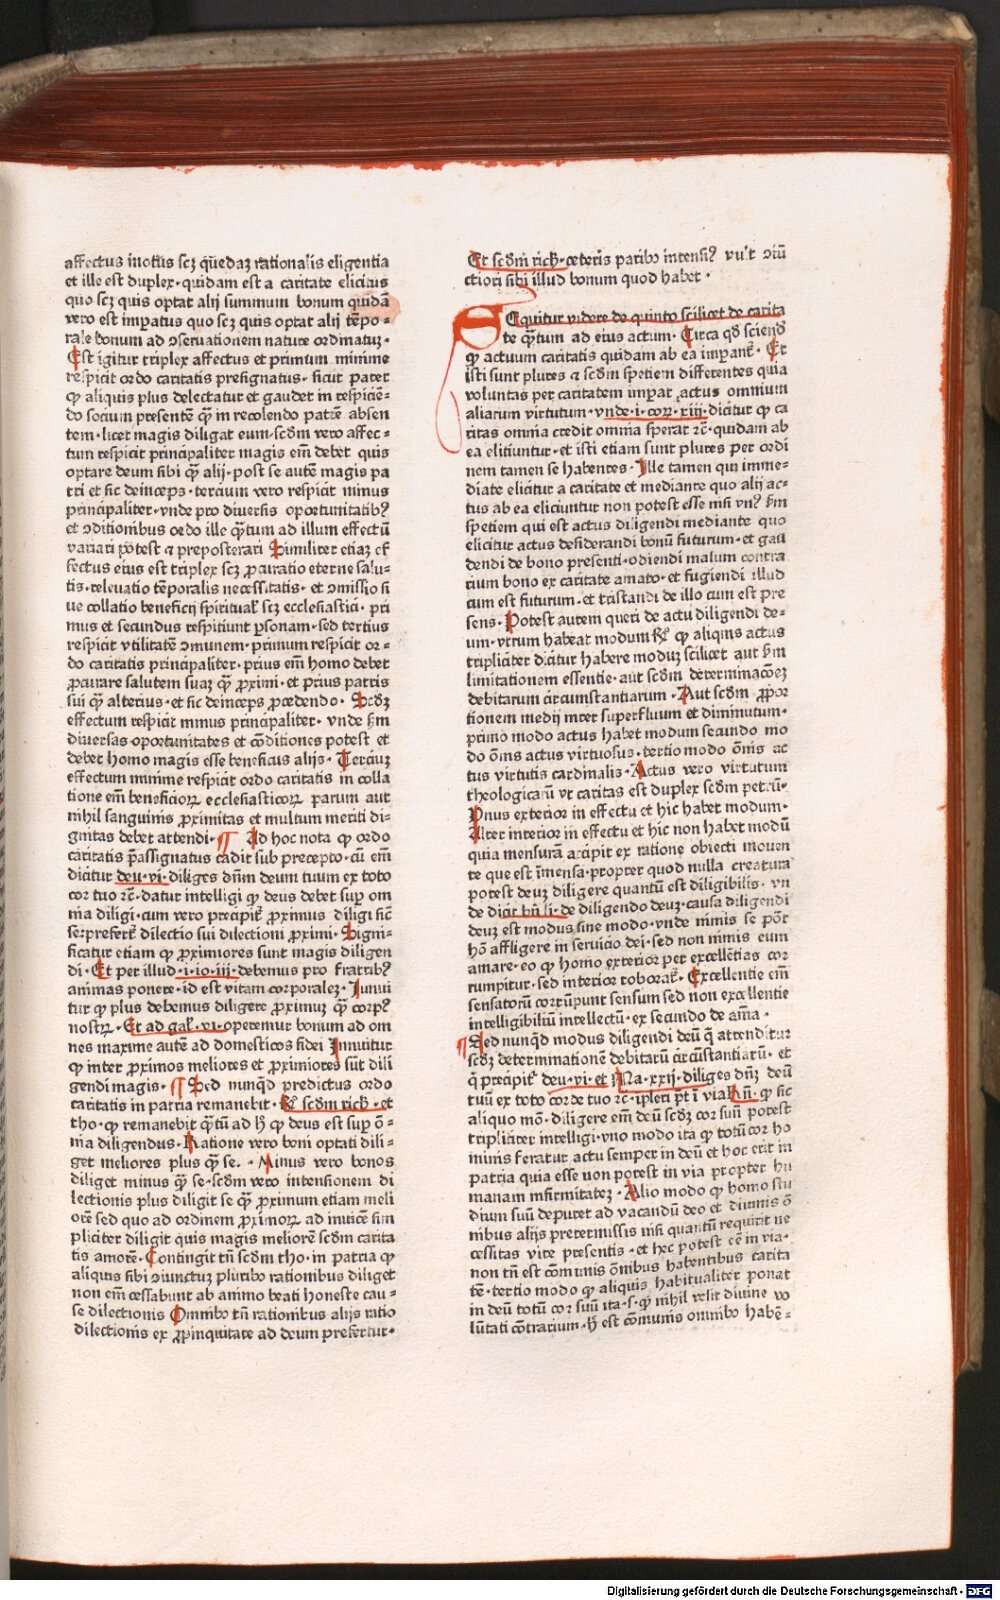 affectus motus scꝫ quedaꝫ rationalis eligentia
et ille est duplex· quidam est a caritate elicitus
quo scꝫ quis optat alij summum bonum quidā
vero est imꝑatus quo scꝫ quis optat alij tēpo-
rale bonum ad ↄseruationem nature ordinatuꝫ·
Est igitur triplex affectus et primum minime
respicit ordo caritatis prefignatus· sicut pater
ꝙ aliquis plus delectatur et gaudet in respiciē-
do socium presentē q̄ꝫ in recolendo patrē absen
tem· licet magis diligat eum· scd̄m vero affec-
tum respicit principaliter magis em̄ debet quis
optare deum sibi q̄ꝫ alij· post se autē magis pa
tri et sic deinceps· tercium vero respicit minus
principaliter· vnde pro diuersis oportunitatibꝰ
et ↄditionibus ordo ille q̄ꝫtum ad illum effectū
variari potest ⁊ preposterari Similiter etiaꝫ ef
fectus eius est triplex scꝫ ꝓcuratio eterne salu-
tis· releuatio tēporalis necessitatis· et ↄmissio si
ue collatio beneficij spiritual' scꝫ ecclesiastici· pri
mus et secundus respitiunt ꝑsonam· sed tertius
respicit vtilitatē ↄmunem· primum respicit or-
do caritatis principaliter· prius em̄ homo debet
ꝓcurare salutem suaꝫ q̄ꝫ ꝓximi· et prius patris
sui q̄ꝫ alterius· et sic deinceps ꝓcedendo· Scd̄ꝫ
effectum respicit minus principaliter· vnde s̄m
diuersas oportunitates et cōditiones potest et
debet homo magis esse beneficus alijs· Terciuꝫ
effectum minime respicit ordo caritatis in colla
tione em̄ beneficioꝝ ecclesiasticoꝝ parum aut
nihil sanguinis ꝓximitas et multum meriti di-
gnitas debet attendi· ¶ Ad hoc nota ꝙ ordo
caritatis p̄assignatus cadit sub precepto· cū em̄
dicitur deu· vi· diliges dn̄m deum tuum ex toto
cor tuo ⁊c̄· datur intelligi ꝙ deus debet suꝑ om
nia diligi· cum vero precipit̄ ꝓximus diligi sic̄
se: prefert̄ dilectio sui dilectioni ꝓximi· Signi-
ficatur etiam ꝙ ꝓximiores sunt magis diligen
di· Et per illud· i· io· iii· debemus pro fratribꝰ
animas ponere· id est vitam corporaleꝫ· Innui
tur ꝙ plus debemus diligere ꝓximuꝫ q̄ꝫ corpꝰ
nostꝝ· Et ad gal'· vi· operemur bonum ad om
nes maxime autē ad domesticos fidei Innuitur
ꝙ inter ꝓximos meliores et ꝓximiores sūt dili
gendi magis· ¶ Sed nunqd predictus ordo
caritatis in patria remanebit· R̄ scd̄m rich· et
tho· ꝙ remanebit q̄ꝫtū ad hͦ ꝙ deus est suꝑ ō-
nia diligendus· Ratione vero boni optati dili-
get meliores plus q̄ꝫ se· · Minus vero bonos
diliget minus q̄ꝫ se· scd̄m vero intensionem di
lectionis plus diligit se q̄ꝫ ꝓximum etiam meli
orē sed quo ad ordinem ꝓximoꝝ ad inuicē sim
pliciter diligit quis magis meliorē scd̄m carita
tis amorē· Contingit tn̄ scd̄m tho· in patria ꝙ
aliquis sibi ↄiunctuꝫ pluribꝰ rationibus diliget
non em̄ cessabunt ab animo beati honeste cau-
se dilectionis Omnibꝰ tn̄ rationibus alijs ratio
dilectionis ex ꝓpinquitate ad deum prefertur·
Et scd̄m rich· ceteris paribꝰ intensiꝰ vult ↄiū
ctiori sibi illud bonum quod habet·
SEquitur videre de quinto scilicet de carita
te q̄ꝫtum ad eius actum· Circa qd̄ sciend̄
ꝙ actuum caritatis quidam ab ea imꝑant̄· Et
isti sunt plures ⁊ scd̄m spetiem differentes quia
voluntas per caritatem imꝑat actus omnium
aliarum virtutum· vnde· i· cor· xiij· dicitur ꝙ ca
ritas omnia credit omnia sperat ⁊c̄· quidam ab
ea elitiuntur· et isti etiam sunt plures per ordi
nem tamen se habentes· Ille tamen qui imme-
diate elicitur a caritate et mediante quo alij ac-
tus ab ea eliciuntur non potest esse nisi vnꝰ s̄m
spetiem qui est actus diligendi mediante quo
elicitur actus desiderandi bonū futurum· et gau
dendi de bono presenti· odiendi malum contra
rium bono ex caritate amato· et fugiendi illud
cum est futurum· et tristandi de illo cum est pre
sens· Potest autem queri de actu diligendi de-
um· vtrum habeat modum R̄ ꝙ aliquis actus
tripliciter dicitur habere moduꝫ scilicet aut s̄m
limitationem essentie· aut scd̄m determinacōeꝫ
debitarum circumstantiarum· Aut scd̄m ꝓpor
tionem medij inter superfluum et diminutum·
primo modo actus habet modum secundo mo
do ōnis actus virtuosus· tertio modo ōnis ac
tus virtutis cardinalis· Actus vero virtutum
theologicarū vt caritas est duplex scd̄m petrū·
Vnus exterior in effectu et hic habet modum·
Alter interior in effectu et hic non habet modū
quia mensurā accipit ex ratione obiecti mouen
te que est īmensa· propter quod nulla creatura
potest deuꝫ diligere quantū est diligibilis· vn
de dicit bn̄· li· de diligendo deuꝫ· causa diligendi
deuꝫ est modus sine modo· vnde nimis se pōt
hō affligere in seruicio dei· sed non nimis eum
amare· eo ꝙ homo exterior per excellētias cor
rumpitur· sed interior roborat̄· Excellentie em̄
sensatorū corrūpunt sensum sed non excellentie
intelligibiliū intellectū· ex secundo de aīa·
¶ Sed nunqd modus diligendi deū q̄ attenditur
scd̄ꝫ determinationē debitarū circūstantiarū· et
q̄ precipit̄ deu· vi· et Ma· xxij· diliges dn̄ꝫ deū
tuū ex toto corde tuo ⁊c̄· īpleri pōt ī via R̄n̄· ꝙ sic
aliquo mō· diligere em̄ deū scd̄ꝫ cor suū potest
tripliciter intelligi· vno modo ita ꝙ totū cor ho
minis feratur actu semper in deū et hoc erit in
patria quia esse non potest in via propter hu
manam infirmitateꝫ· Alio modo ꝙ homo stu
dium suū deputet ad vacandū deo et diuinis ō
nibus alijs pretermissis nisi quantū requirit ne
cessitas vite presentis· et hec potest eē in via·
non tn̄ est cōmunis ōnibus habentibus carita
tē· tertio modo ꝙ aliquis habitualiter ponat
in deū totū cor suū ita· s· ꝙ nihil velit diuine vo
lūtati cōtrarium· hͦ est cōmunis omnibꝰ habē-
Digitalisierung gefördert durch die Deutsche Forschungsgemeinschaft - DFG